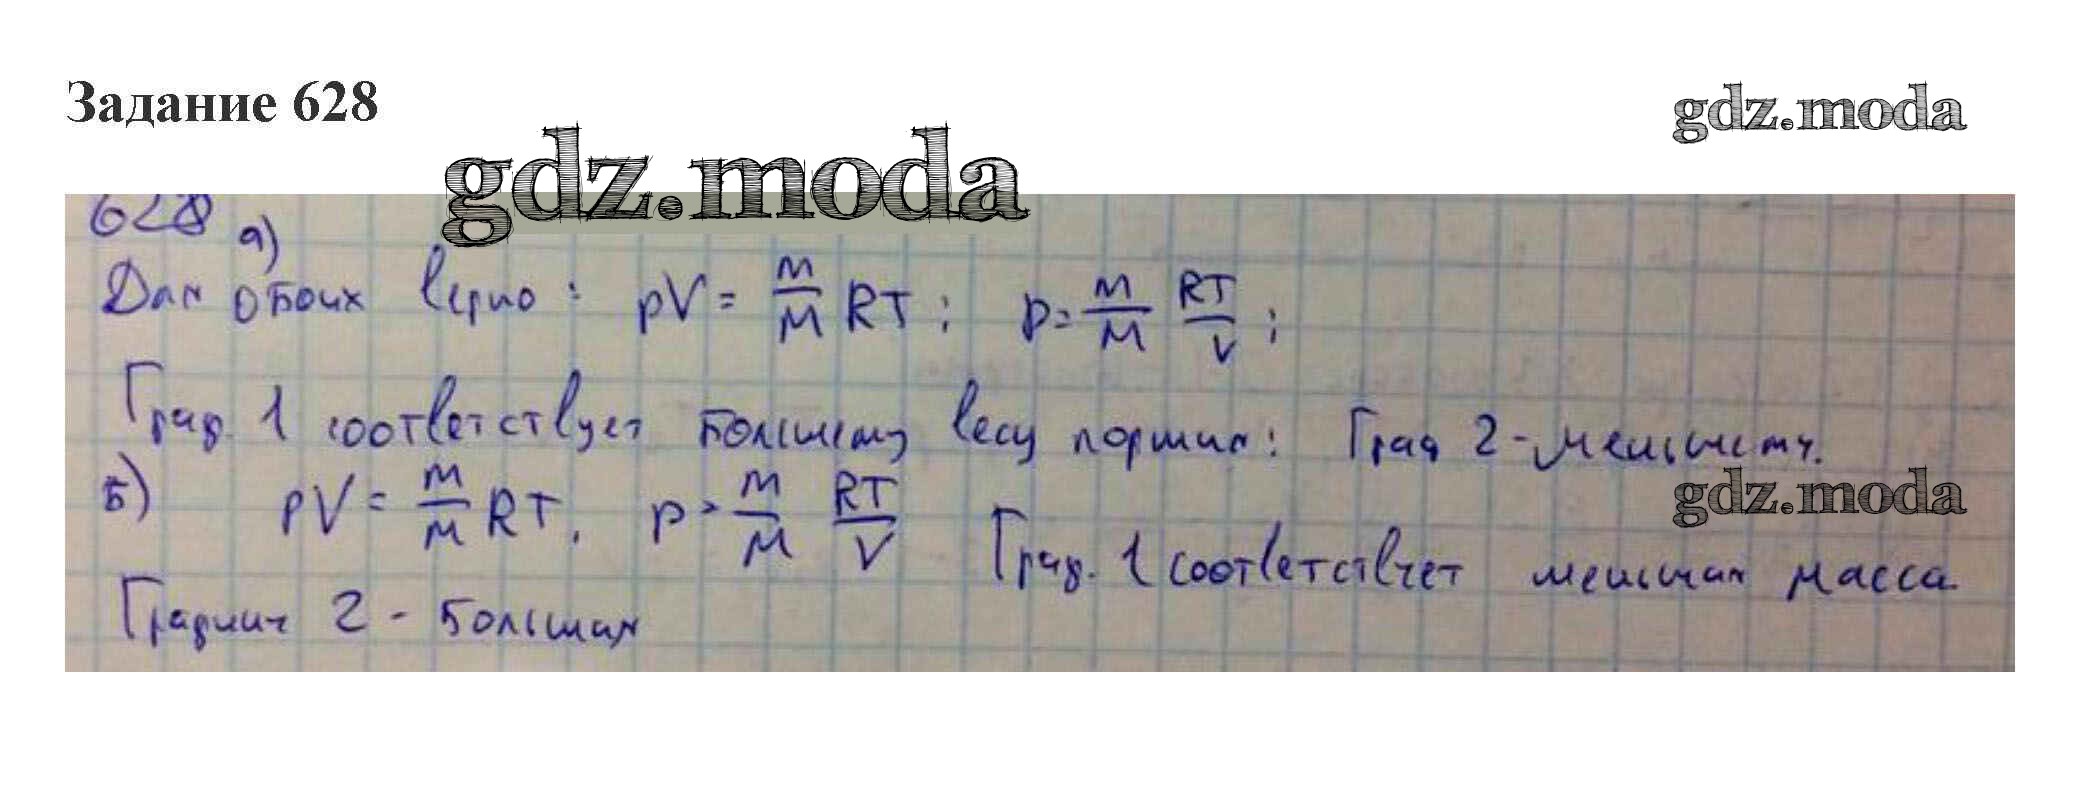 Задание 628
gdz.moda
gdz.moda
628 а)
Для обоих верно: pV = m/M RT; p = m/M RT/V;
Граф. 1 соответствует большему весу поршня: Граф 2 - меньшему.
gdz.moda
б) pV = m/M RT, p = m/M RT/V Граф. 1 соответствует меньшая масса
График 2 - большая